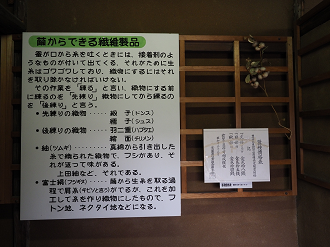 繭からできる繊維製品
蚕が口から糸を吐くときには、接着剤のよ
うなものが付いて出てくる。それがために生
糸はゴワゴワしており、織物にするにはそれ
を取り除かなければいけない。
その作業を「練る」と言い、織物にする前
に練るのを「先練り」織物にしてから練るの
を「後練り」と言う。
・先練りの織物・・・・・緞子(ドンス)
繻子(シュス)
・後練りの織物・・・・・羽二重(ハブタエ)
縮緬(チリメン)
・紬(ツムギ)・・・・・真綿から引き出した
糸で織られた織物で、フシがあり、そ
れが返って味がある。
上田紬など、それである。
・富士絹(フジギヌ)・・・・・繭から生糸を取る過
程で屑糸(キビソと言う)がでるが、これを加
工して糸を作り織物にしたもので、フ
トン地、ネクタイ地などになる。